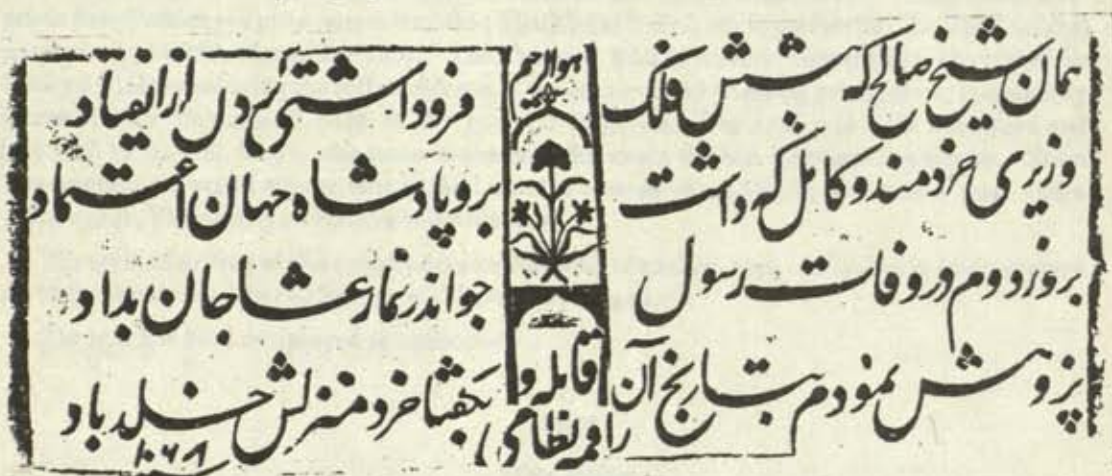 همان شیخ صالح که پیش فلک
فرود داشتی گردن از انقیاد
وزیری خردمند و کامل که داشت
برو پادشاه جهان اعتماد
بروز دوم در وفات رسول
چو اندر نماز عشا جان بداد
پژوهش نمودم بتاریخ آن
بگفتا خرد منزلش خلد باد
۱۰۶۸
هو الرحیم
قایله و
راقمه نظامی